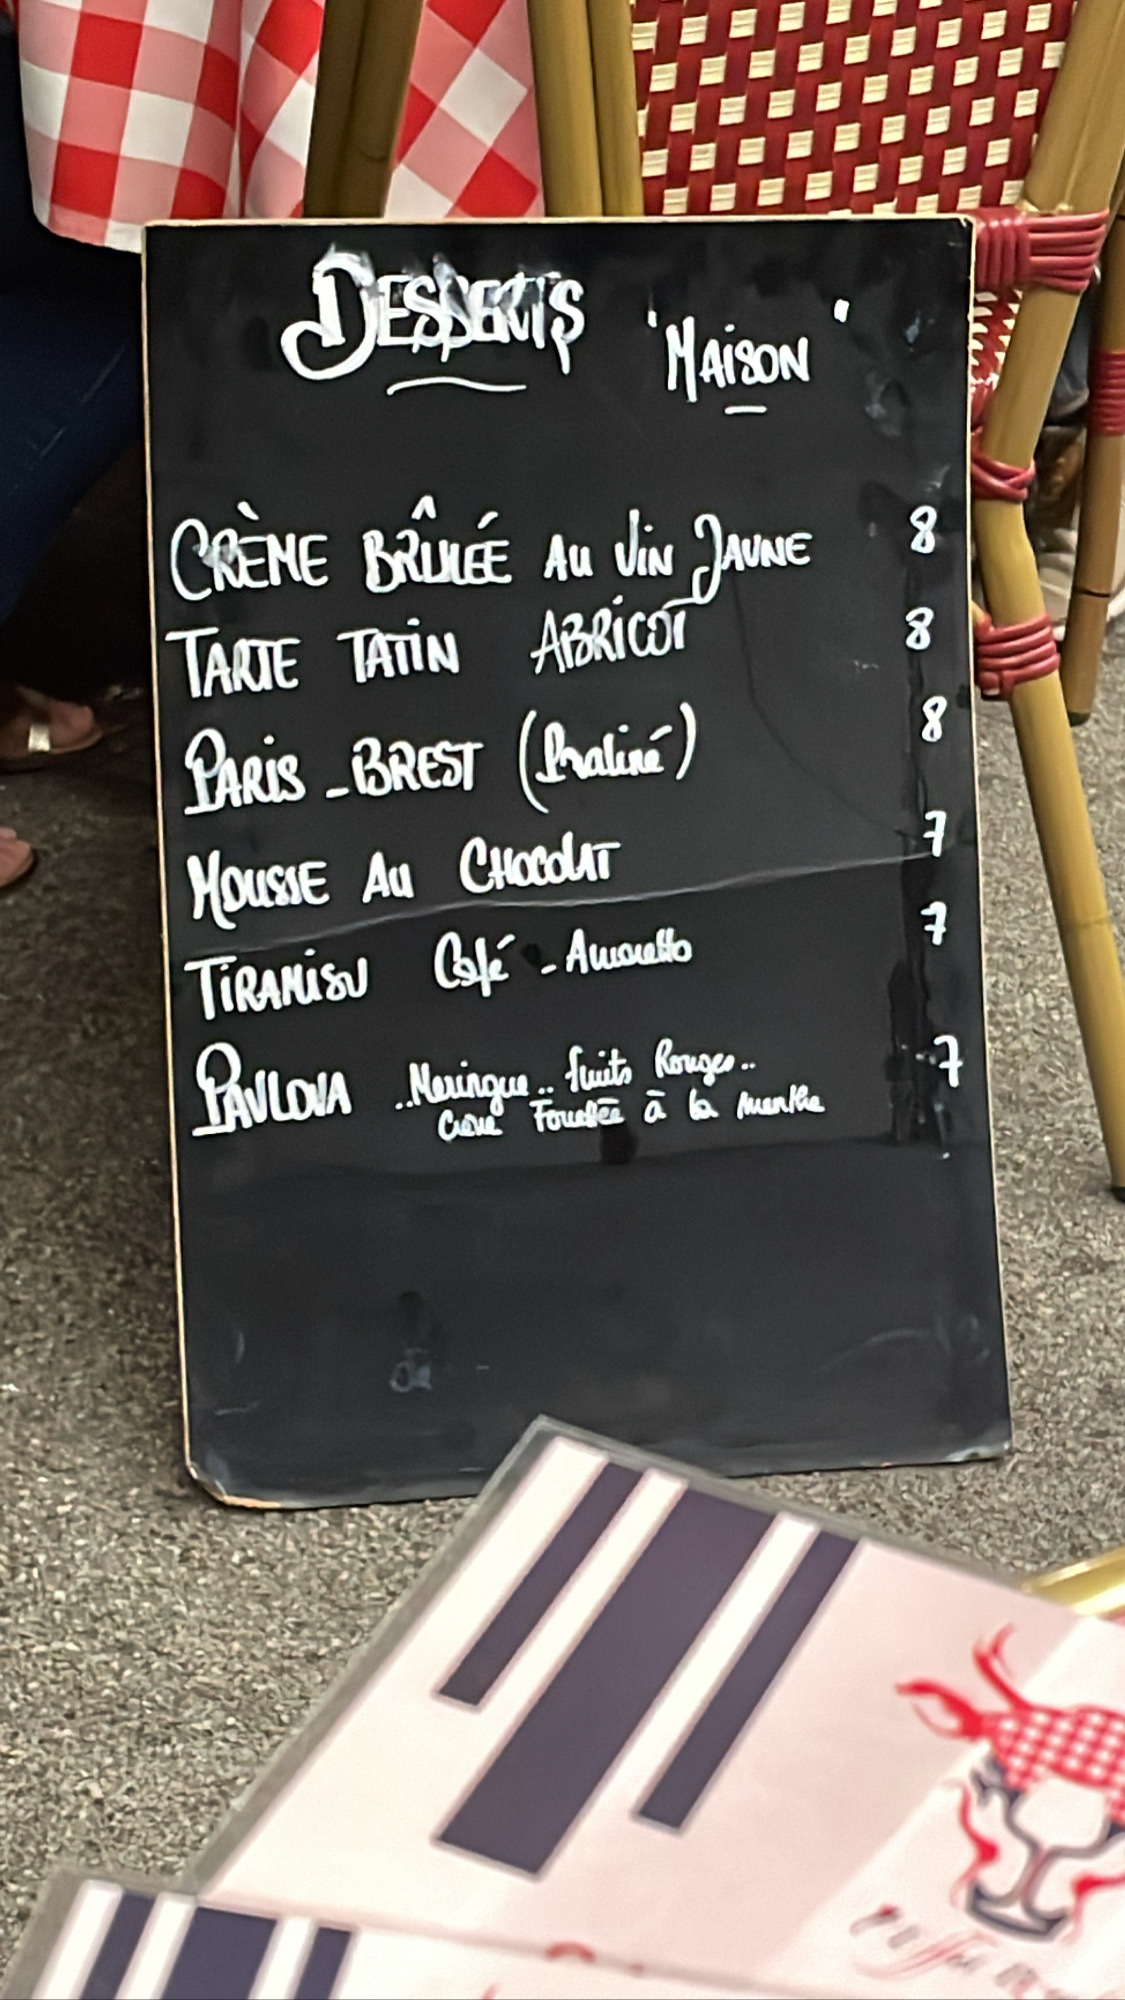 DESSERTS "MAISON"
CRÈME BRÛLÉE AU VIN JAUNE 8
TARTE TATIN ABRICOT 8
PARIS-BREST (Praliné) 8
MOUSSE AU CHOCOLAT 7
TIRAMISU Café - Amaretto 7
PAVLOVA ..Meringue.. fruits Rouges.. 7
Crème Fouettée à la menthe